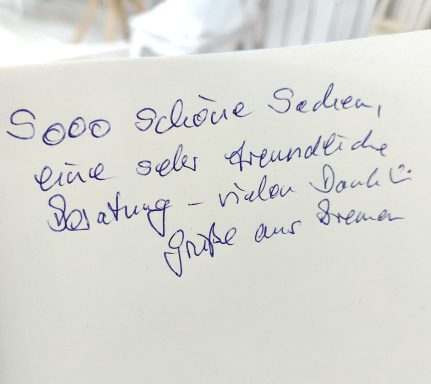 Sooo schöne Sachen,
eine sehr freundliche
Beratung – vielen Dank ☺
Grüße aus Bremen